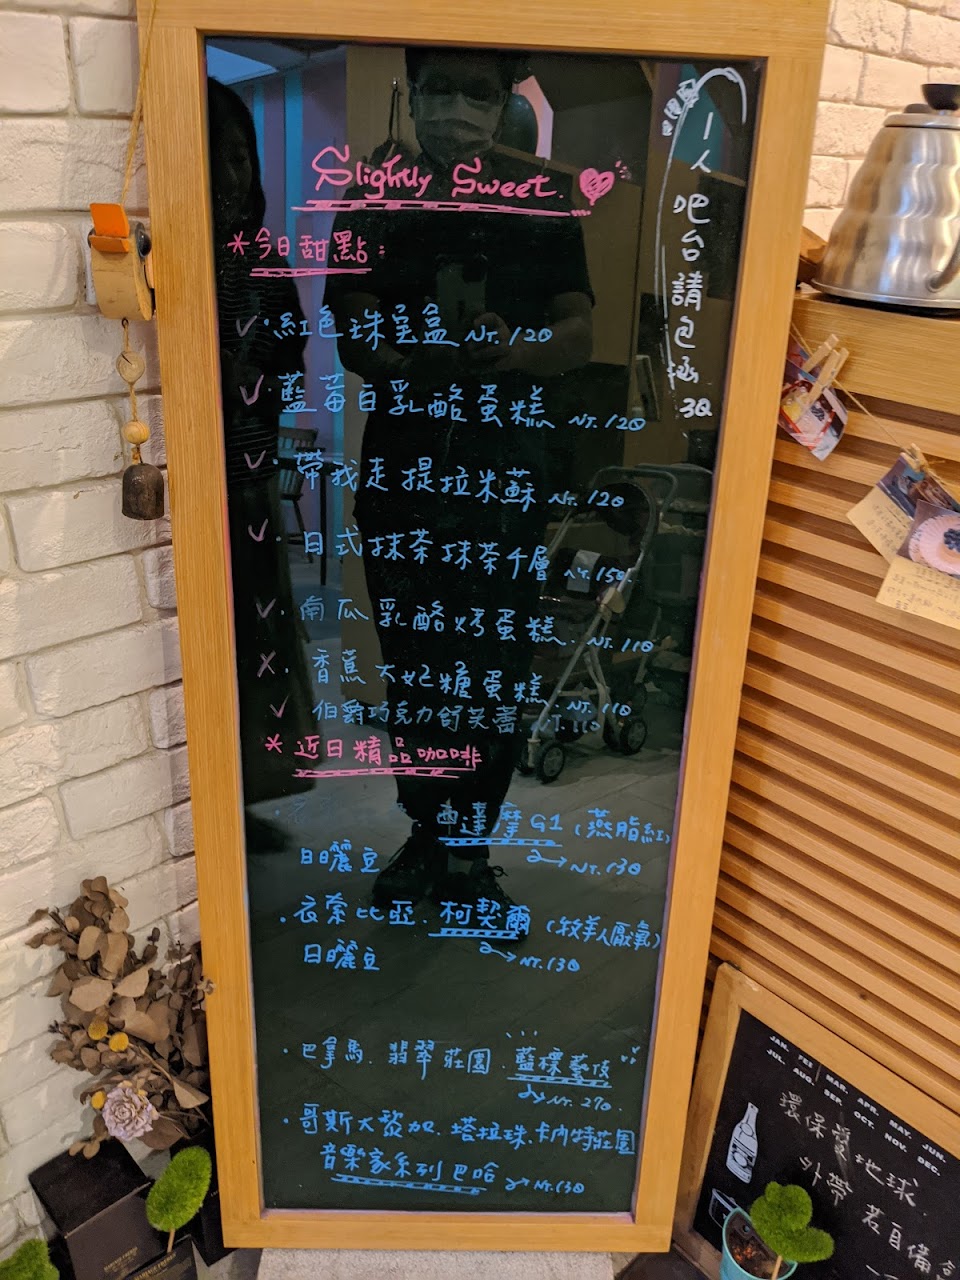 Slightly Sweet.
1人吧台請包涵 3Q
*今日甜點:
✓·紅色珠寶盒 NT.120
✓·藍莓白乳酪蛋糕 NT.120
✓·帶我走提拉米蘇 NT.120
✓·日式抹茶抹茶千層 NT.150.
✓·南瓜乳酪烤蛋糕. NT.110
✗·香蕉太妃糖蛋糕 NT.110
✓ 伯爵巧克力舒芙蕾. NT.110
*近日精品咖啡
西達摩 G1 (燕脂紅)
日曬豆 NT.130
·衣索比亞.柯契爾 (牧羊人厭氧)
日曬豆 NT.130
·巴拿馬.翡翠莊園.藍標藝伎
NT.270.
·哥斯大黎加.塔拉珠.卡內特莊園
音樂家系列 巴哈 NT.130
JAN. MAR. APR. MAY. JUN.
JUL. AUG. SEP. OCT. NOV. DEC.
環保愛地球.
外帶 若自備